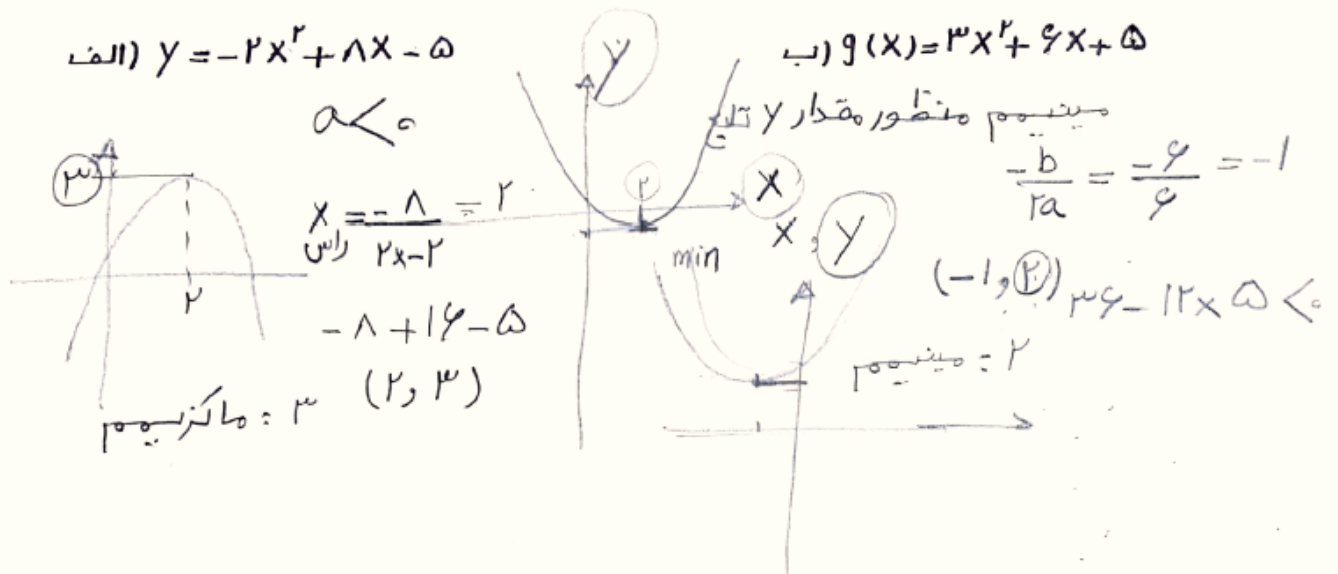 الف) y = -۲x² + ۸x - ۵
a < ۰
x راس = -۸ / ۲×-۲ = ۲
-۸ + ۱۶ - ۵
(۲, ۳)
ماکزیمم : ۳
۳
۲
y
۲
x
min
x, y
ب) g(x) = ۳x² + ۶x + ۵
مینیمم منظور مقدار y تابع
-b / ۲a = -۶ / ۶ = -۱
(-۱, ۲)
۳۶ - ۱۲ × ۵ < ۰
مینیمم : ۲